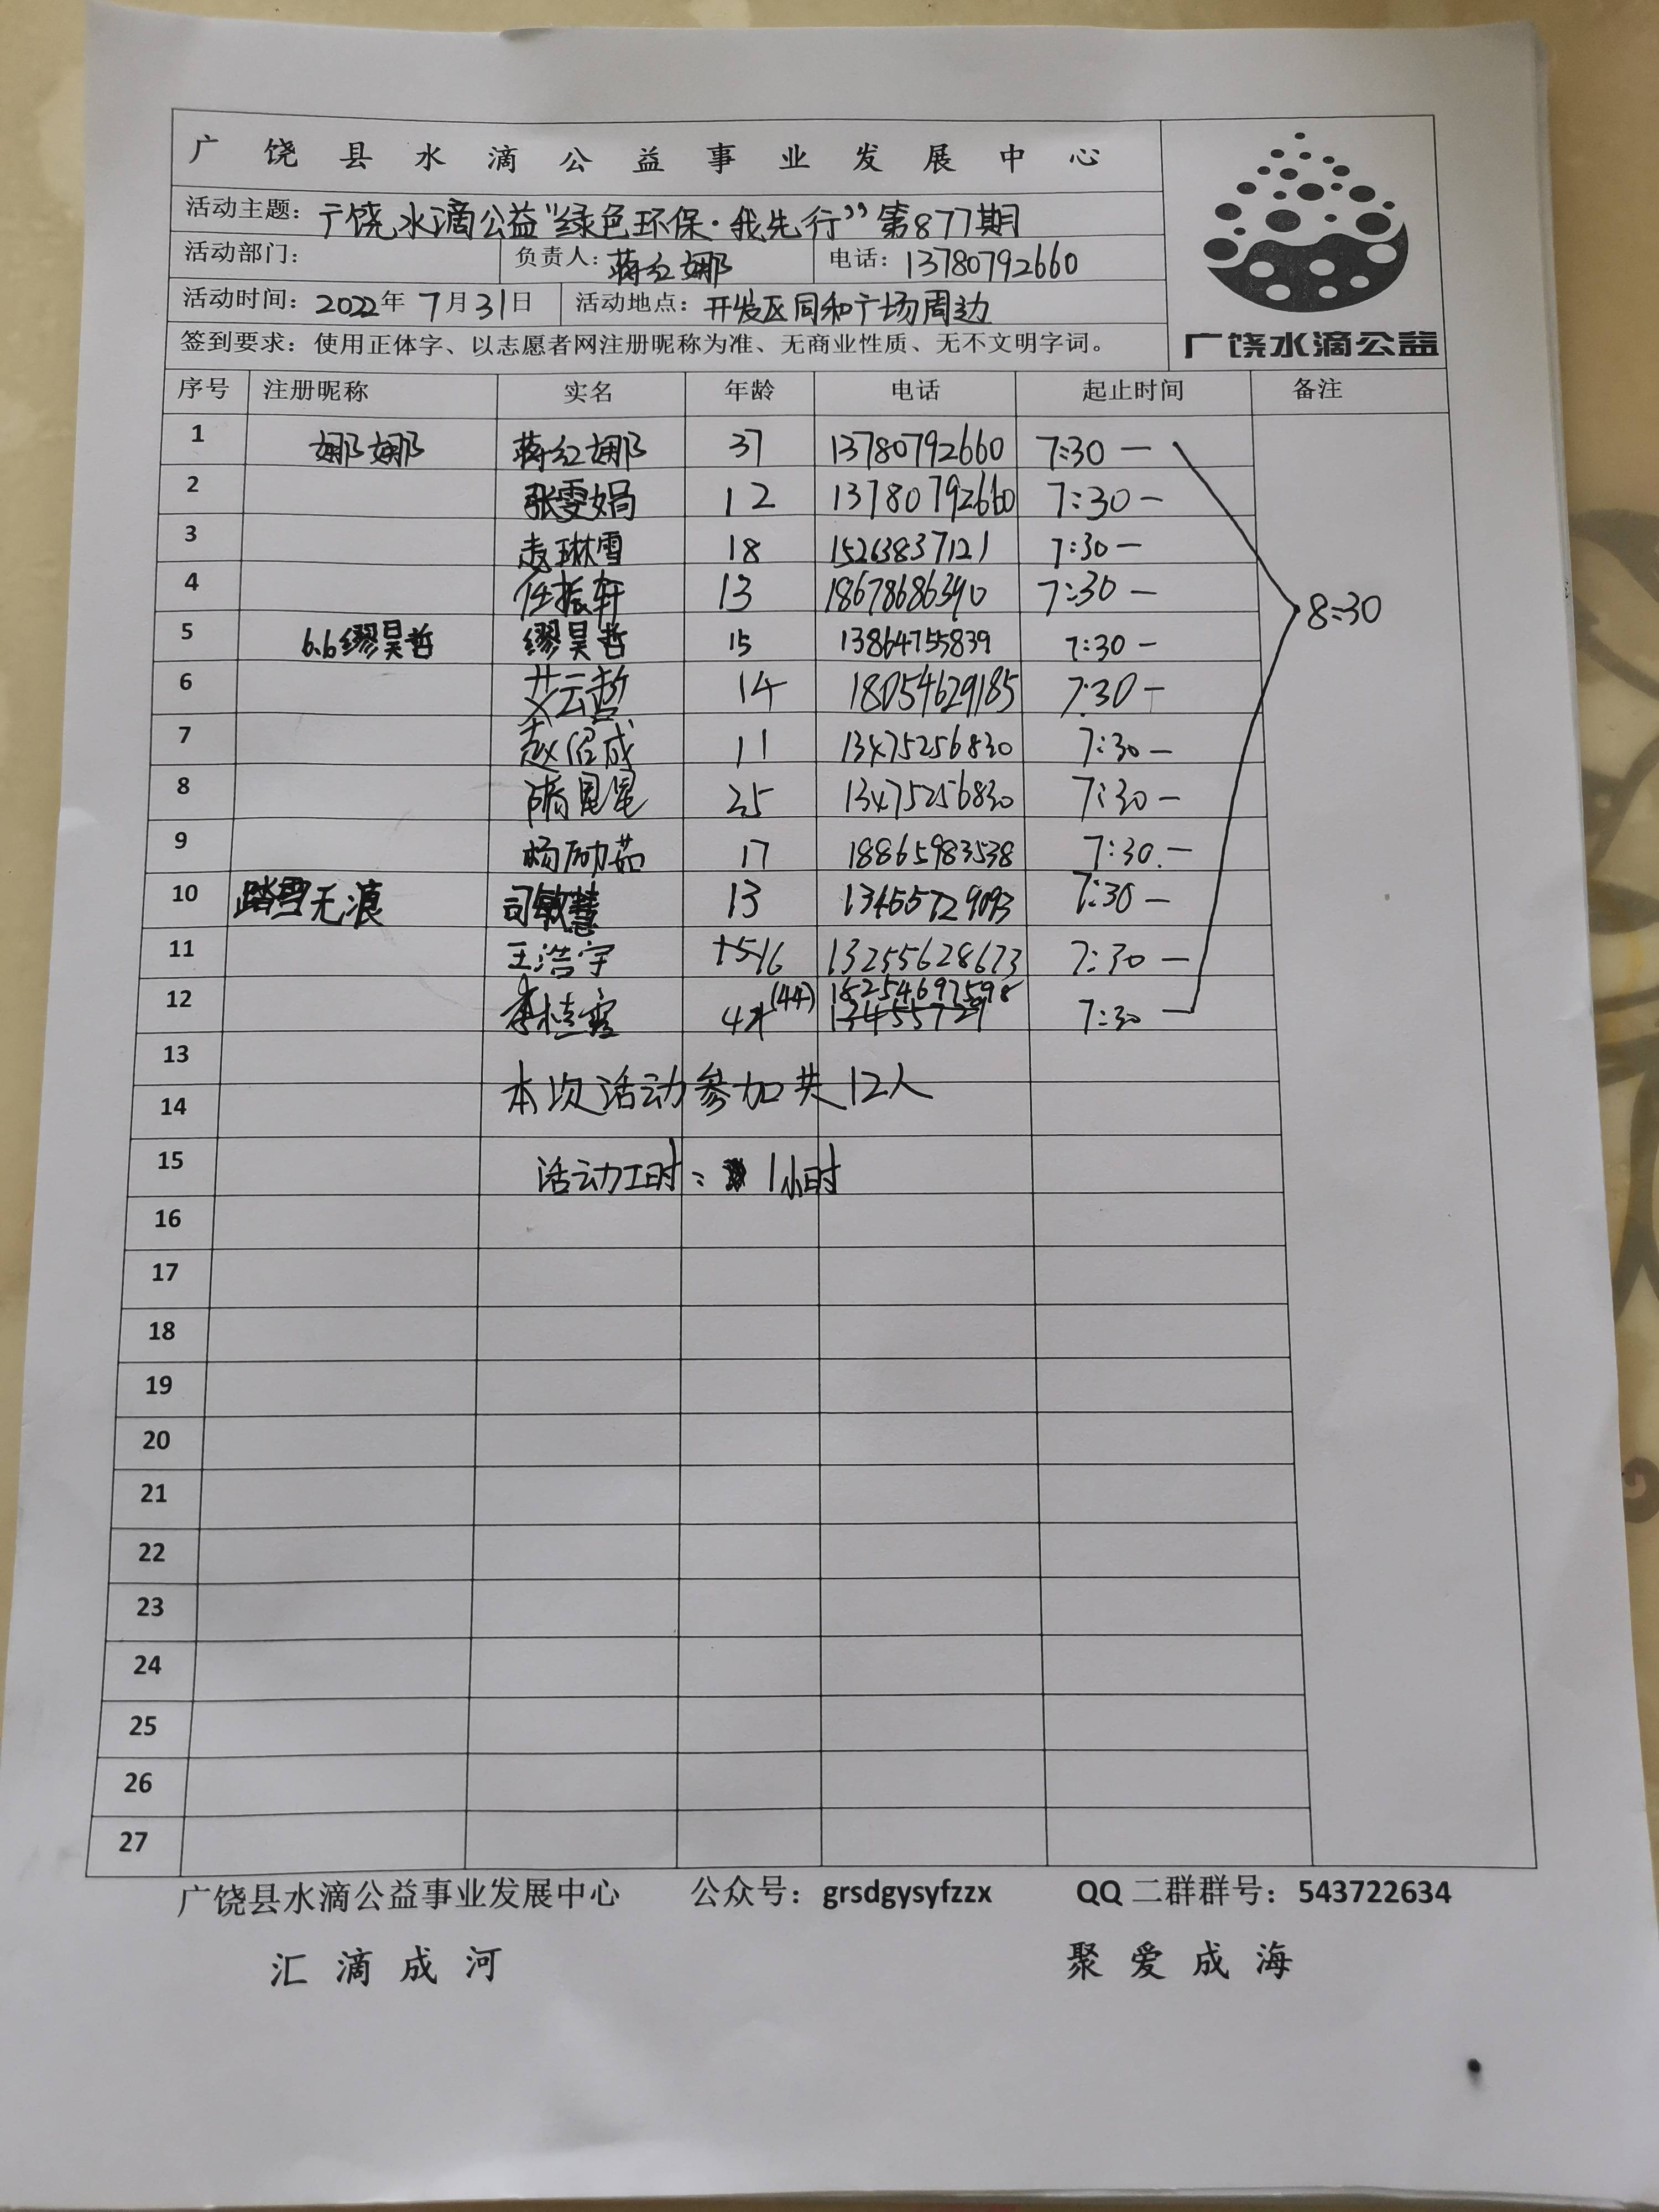 广饶县水滴公益事业发展中心
活动主题：广饶水滴公益“绿色环保·我先行”第877期
活动部门： 负责人：蒋红娜 电话：13780792660
活动时间：2022年7月31日 活动地点：开发区同和广场周边
签到要求：使用正体字、以志愿者网注册昵称为准、无商业性质、无不文明字词。
广饶水滴公益
序号 注册昵称 实名 年龄 电话 起止时间 备注
1 娜娜 蒋红娜 37 13780792660 7:30—
2 张雯娟 12 13780792660 7:30—
3 赵琳雪 18 15263837121 7:30—
4 任振轩 13 18678686390 7:30—
8:30
5 6.6缪昊哲 缪昊哲 15 13864755839 7:30—
6 艾云哲 14 18054629185 7:30—
7 11 13475256830 7:30—
8 25 13475256830 7:30—
9 杨励茹 17 18865983538 7:30.—
10 踏雪无痕 司敏慧 13 13465729093 7:30—
11 王浩宇 16 13255628673 7:30—
12 (44) 18254697598 7:30—
13
14 本次活动参加共12人
15 活动工时：1小时
16
17
18
19
20
21
22
23
24
25
26
27
广饶县水滴公益事业发展中心 公众号：grsdgysyfzzx QQ二群群号：543722634
汇滴成河 聚爱成海